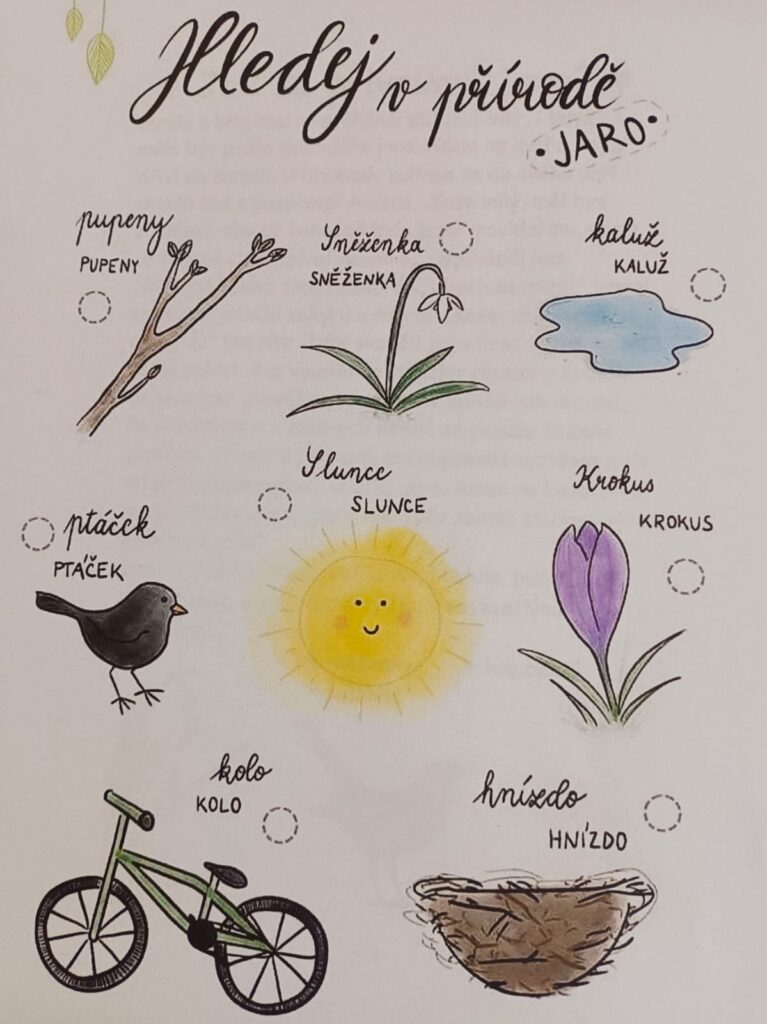 Hledej v přírodě
• JARO •
pupeny
PUPENY
Sněženka
SNĚŽENKA
kaluž
KALUŽ
ptáček
PTÁČEK
Slunce
SLUNCE
Krokus
KROKUS
kolo
KOLO
hnízdo
HNÍZDO